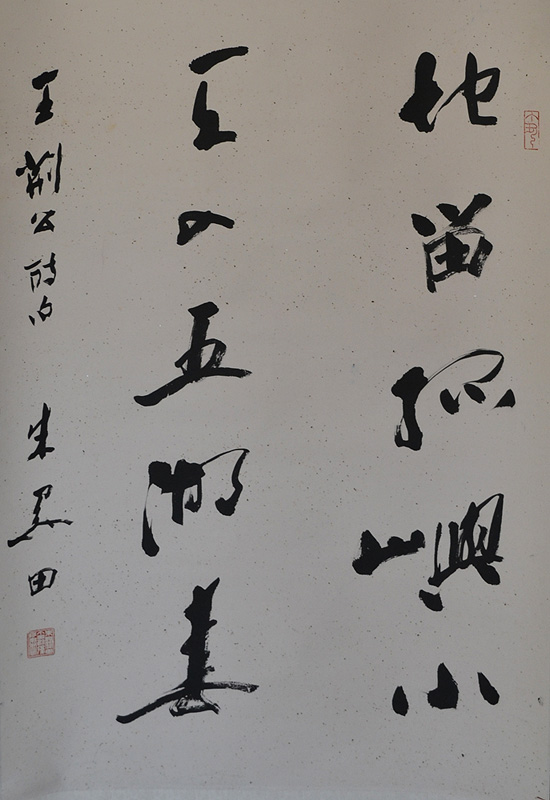 地留孤嶼小
天入五湖春
王荆公詩句 朱关田